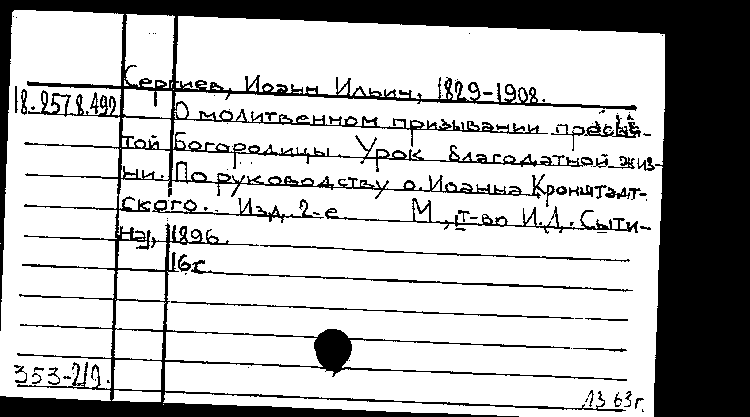 Сергиев, Иоанн Ильич, 1829-1908.
18.257 8.492
О молитвенном призывании пресвя-
той Богородицы. Урок благодатной жиз-
ни. По руководству о. Иоанна Кронштадт-
ского. Изд. 2-е М., т-во И.Д. Сыти-
на, 1896.
16 с.
353-219.
13 63 г.